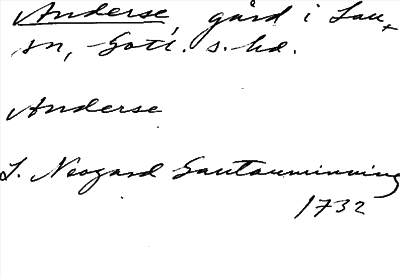 Anderse, gård i Lau
sn, Gotl. s. hd.
Anderse
J. Neogard Gautauminning
1732